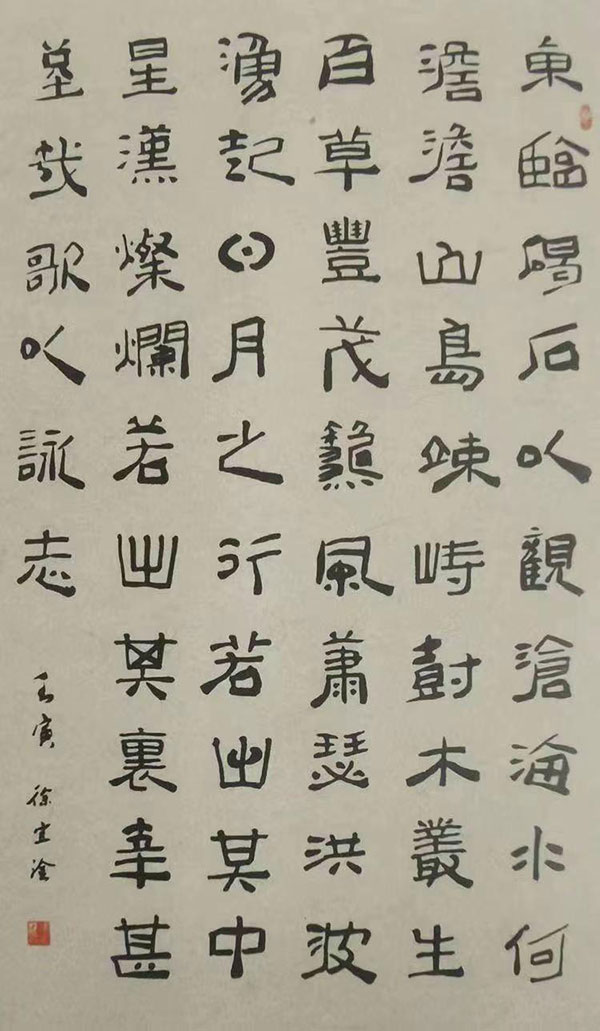 東臨碣石以觀滄海水何
澹澹山島竦峙樹木叢生
百草豐茂秋風蕭瑟洪波
湧起日月之行若出其中
星漢燦爛若出其裏幸甚
至哉歌以詠志
壬寅 徐